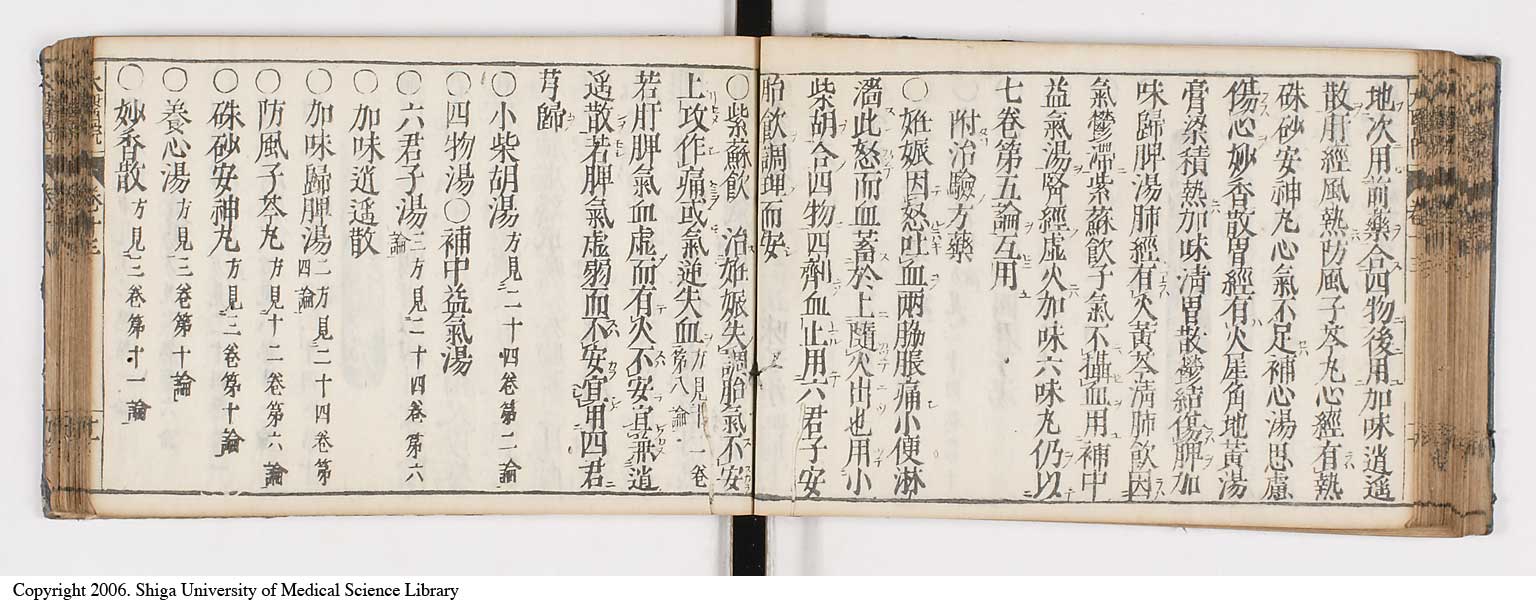 地次用前藥合四物後用加味逍遥
散肝經風熱防風子芩丸心經有熱
硃砂安神丸心氣不足補心湯思慮
傷心妙香散胃經有火犀角地黃湯
膏粱積熱加味清胃散鬱結傷脾加
味歸脾湯肺經有火黃芩清肺飲因
氣鬱滯紫蘇飲子氣不攝血用補中
益氣湯腎經虛火加味六味丸仍以
七卷第五論互用
○附治驗方藥
○姙娠因怒吐血兩脇脹痛小便淋
濇此怒而血蓄於上隨火出也用小
柴胡合四物四劑血止用六君子安
胎飲調理而安
○紫蘇飲 治姙娠失調胎氣不安
上攻作痛或氣逆失血方見十一卷第八論
若肝脾氣血虛而有火不安宜兼逍
遥散若脾氣虛弱而不安宜用四君
芎歸
○小柴胡湯方見二十四卷第二論
○四物湯○補中益氣湯
○六君子湯三方見二十四卷第六論
○加味逍遥散
○加味歸脾湯二方見二十四卷第四論
○防風子芩丸方見十二卷第六論
○硃砂安神丸方見三卷第十論
○養心湯方見三卷第十論
○妙香散方見三卷第十一論
Copyright 2006. Shiga University of Medical Science Library